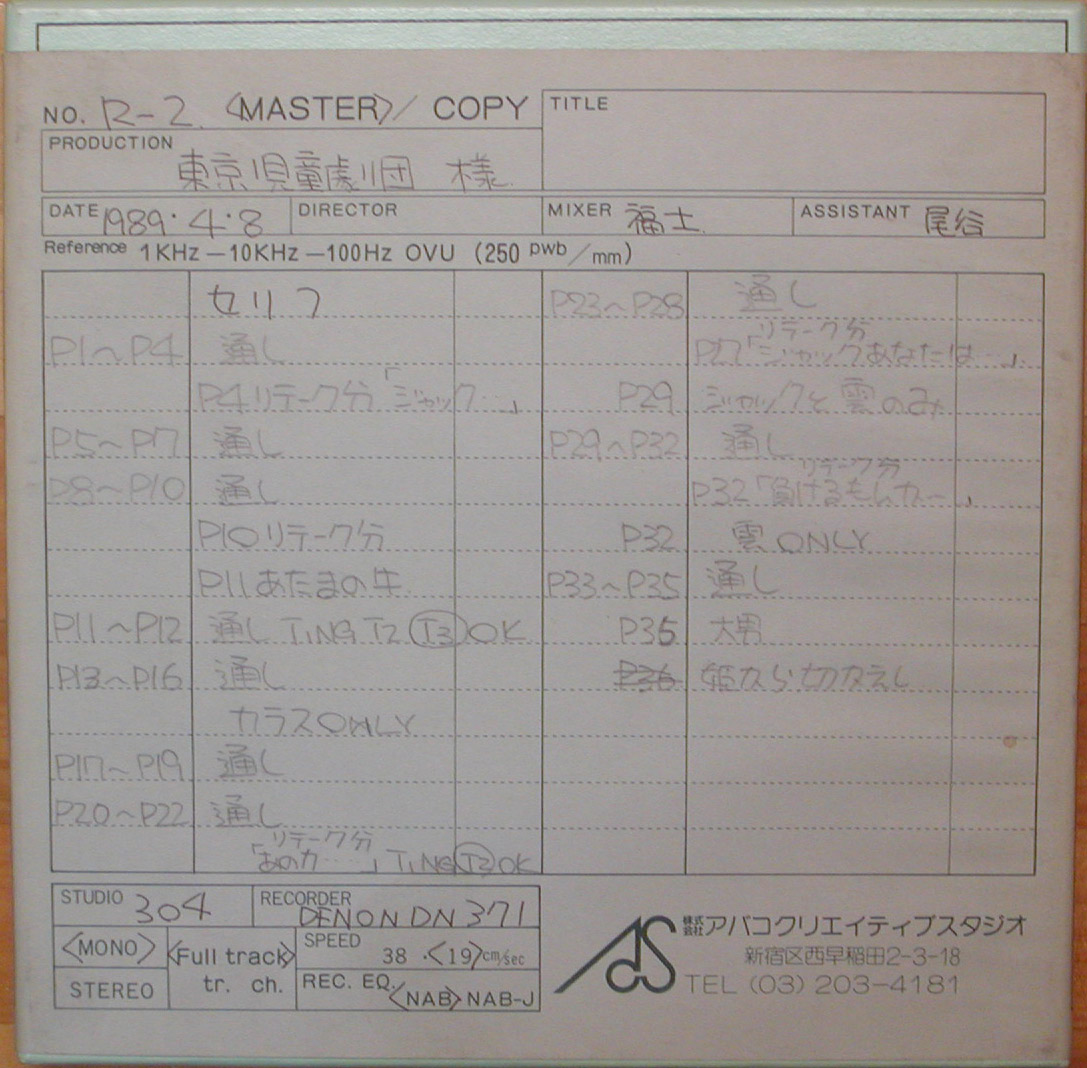 NO. R-2. <MASTER>/ COPY
TITLE
PRODUCTION
東京児童劇団 様
DATE 1989・4・8
DIRECTOR
MIXER 福士
ASSISTANT 尾谷
Reference 1KHz—10KHz—100Hz OVU (250 pwb/mm)
セリフ
P1〜P4 通し
P4リテーク分「ジャック…」
P5〜P7 通し
P8〜P10 通し
P10リテーク分
P11あたまの牛
P11〜P12 通し T1NG T2 T3 OK
P13〜P16 通し
カラスONLY
P17〜P19 通し
P20〜P22 通し
リテーク分
「あのカ……」T1NG T2 OK
P23〜P28 通し
リテーク分
P27「ジャックあなたは…」
P29 ジャックと雲のみ
P29〜P32 通し
リテーク分
P32「負けるもんカー」
P32 雲ONLY
P33〜P35 通し
P36 大男
P36 姫から切かえし
STUDIO 304
RECORDER DENON DN 371
<MONO>
STEREO
<Full track>
tr. ch.
SPEED
38 ・<19>cm/sec
REC. EQ.
<NAB> NAB-J
株式会社アバコクリエイティブスタジオ
新宿区西早稲田2-3-18
TEL (03) 203-4181